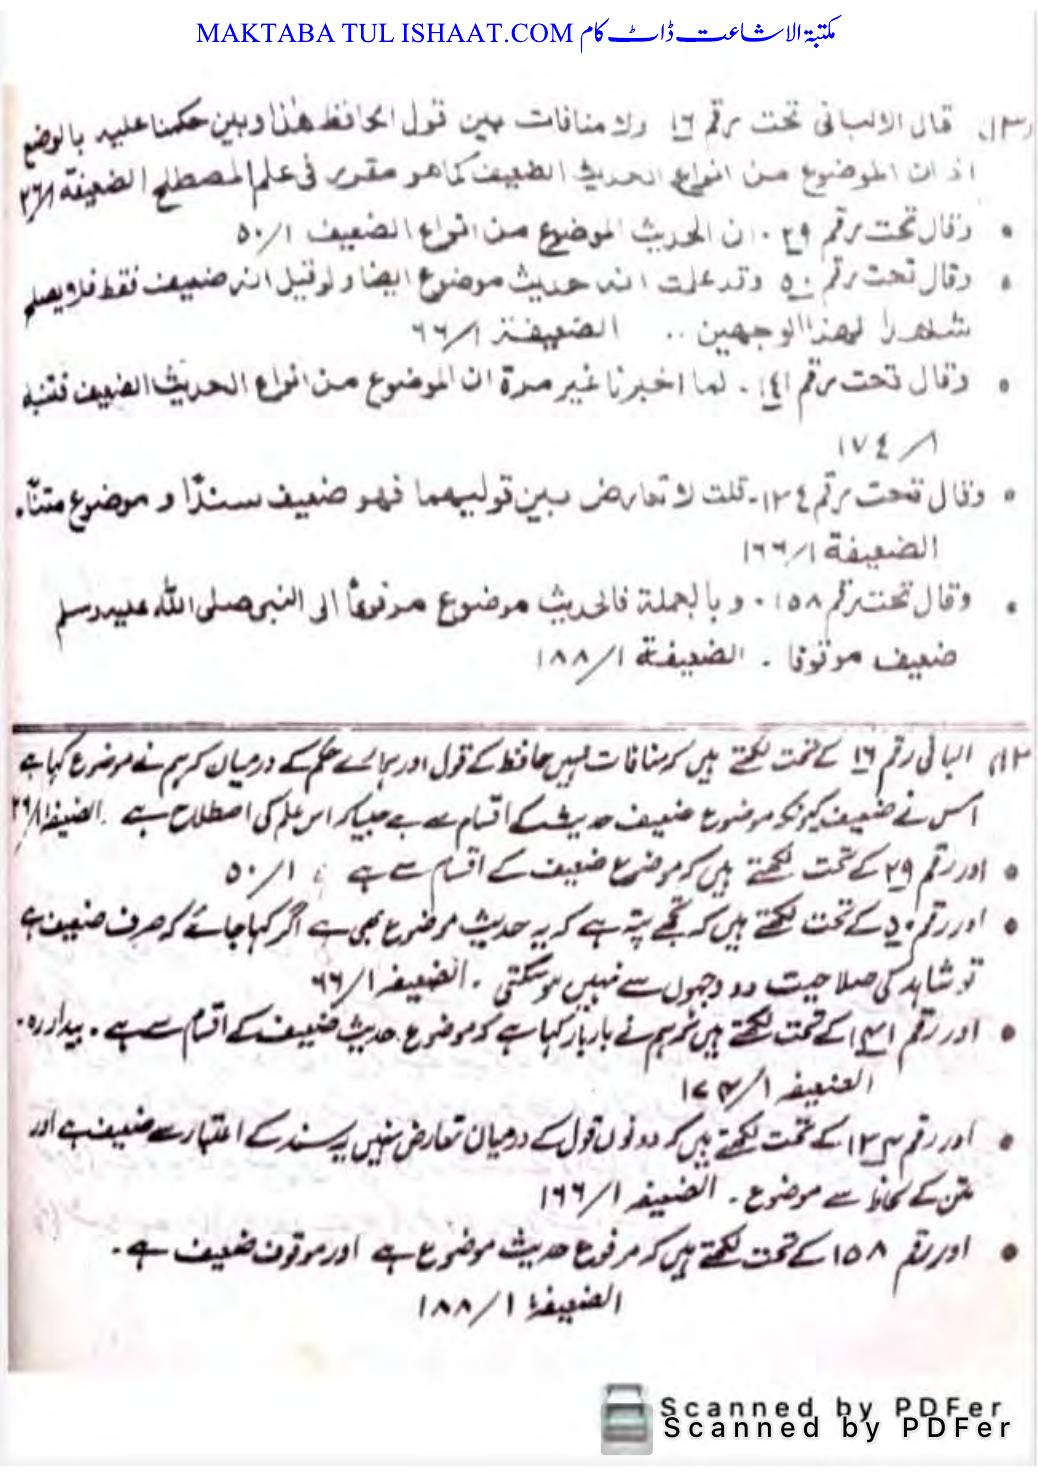 MAKTABA TUL ISHAAT.COM مکتبۃ الاشاعت ڈاٹ کام
(۱۳) قال الالبانی تحت رقم ١٦ ولا منافات بین قول الحافظ ھٰذا و بین حکمنا علیہ بالوضع
اذ ان الموضوع من انواع الحدیث الضعیف کما ھو مقرر فی علم المصطلح الضعیفۃ ١/٣٦
• وقال تحت رقم ٢٩ ۔ ان الحدیث الموضوع من انواع الضعیف ١/٥٠
• وقال تحت رقم ٥٠ وقد علمت انہ حدیث موضوع ایضا ولو قیل انہ ضعیف فقط فلا یصلح
شاھدا لھذا الوجھین .. الضعیفۃ ١/٦٦
• وقال تحت رقم ١٤١ ۔ لما اخبرنا غیر مرۃ ان الموضوع من انواع الحدیث الضعیف فتنبہ
١/١٧٤
• وقال تحت رقم ١٣٤ ۔ قلت لا تعارض بین قولیھما فھو ضعیف سنداً و موضوع متناً۔
الضعیفۃ ١/١٦٦
• وقال تحت رقم ١٥٨ ۔ و بالجملۃ فالحدیث موضوع مرفوعاً الی النبی صلی اللہ علیہ وسلم
ضعیف موقوفا ۔ الضعیفۃ ١/١٨٨
(۱۳) البانی رقم ١٦ کے تحت لکھتے ہیں کہ منافات نہیں حافظ کے قول اور ہمارے حکم کے درمیان کہ ہم نے موضوع کہا ہے
اس نے ضعیف کیونکہ موضوع ضعیف حدیث کے اقسام سے ہے جیسا کہ اس علم کی اصطلاح ہے ۔ الضعیفۃ
• اور رقم ٢٩ کے تحت لکھتے ہیں کہ موضوع ضعیف کے اقسام سے ہے ١/٥٠
• اور رقم ٥٠ کے تحت لکھتے ہیں کہ تجھے پتہ ہے کہ یہ حدیث موضوع بھی ہے اگر کہا جائے کہ صرف ضعیف ہے
تو شاہد کی صلاحیت دو وجہوں سے نہیں ہو سکتی ۔ الضعیفہ ١/٦٦
• اور رقم ١٤١ کے تحت لکھتے ہیں کہ ہم نے بار بار کہا ہے کہ موضوع حدیث ضعیف کے اقسام سے ہے ۔ بیدار رہ ۔
الضعیفہ ١/١٧٤
• اور رقم ١٣٤ کے تحت لکھتے ہیں کہ دونوں قول کے درمیان تعارض نہیں یہ سند کے اعتبار سے ضعیف ہے اور
متن کے لحاظ سے موضوع ۔ الضعیفہ ١/١٦٦
• اور رقم ١٥٨ کے تحت لکھتے ہیں کہ مرفوع حدیث موضوع ہے اور موقوف ضعیف ہے ۔
الضعیفۃ ١/١٨٨
Scanned by PDFer
Scanned by PDFer